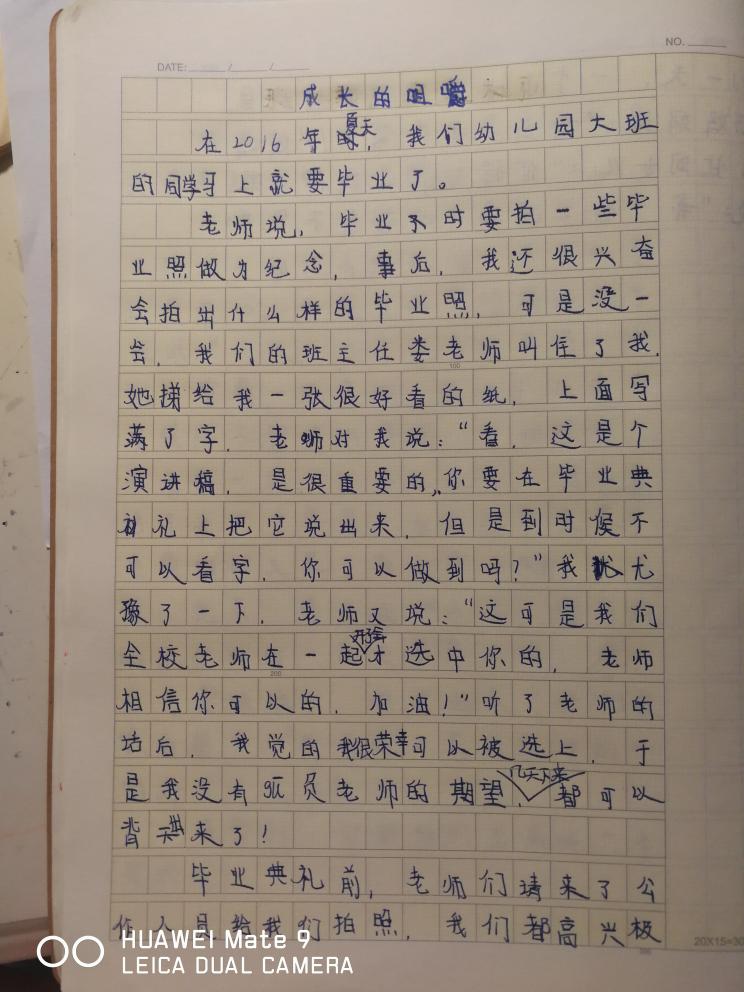 NO.
DATE: / /
成长的咀嚼
在2016年夏天，我们幼儿园大班
的同学马上就要毕业了。
老师说，毕业不时要拍一些毕
业照做为纪念，事后，我还很兴奋
会拍出什么样的毕业照，可是没一
会，我们的班主任娄老师叫住了我，
100
她递给我一张很好看的纸，上面写
满了字，老师对我说：“看，这是个
演讲稿，是很重要的,,你要在毕业典
礼上把它说出来，但是到时候不
可以看字，你可以做到吗？”我尤
豫了一下，老师又说：“这可是我们
全校老师在一起开了会才选中你的，老师
200
相信你可以的，加油！”听了老师的
话后，我觉的我很荣幸可以被选上，于
是我没有孤负老师的期望，几天下来都可以
背出来了！
毕业典礼前，老师们请来了公
作人员给我们拍照，我们都高兴极
300
20X15=30
HUAWEI Mate 9
LEICA DUAL CAMERA